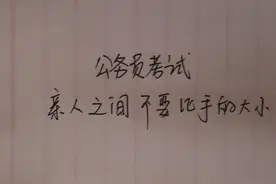 公务员考试
亲人之间不要比手的大小